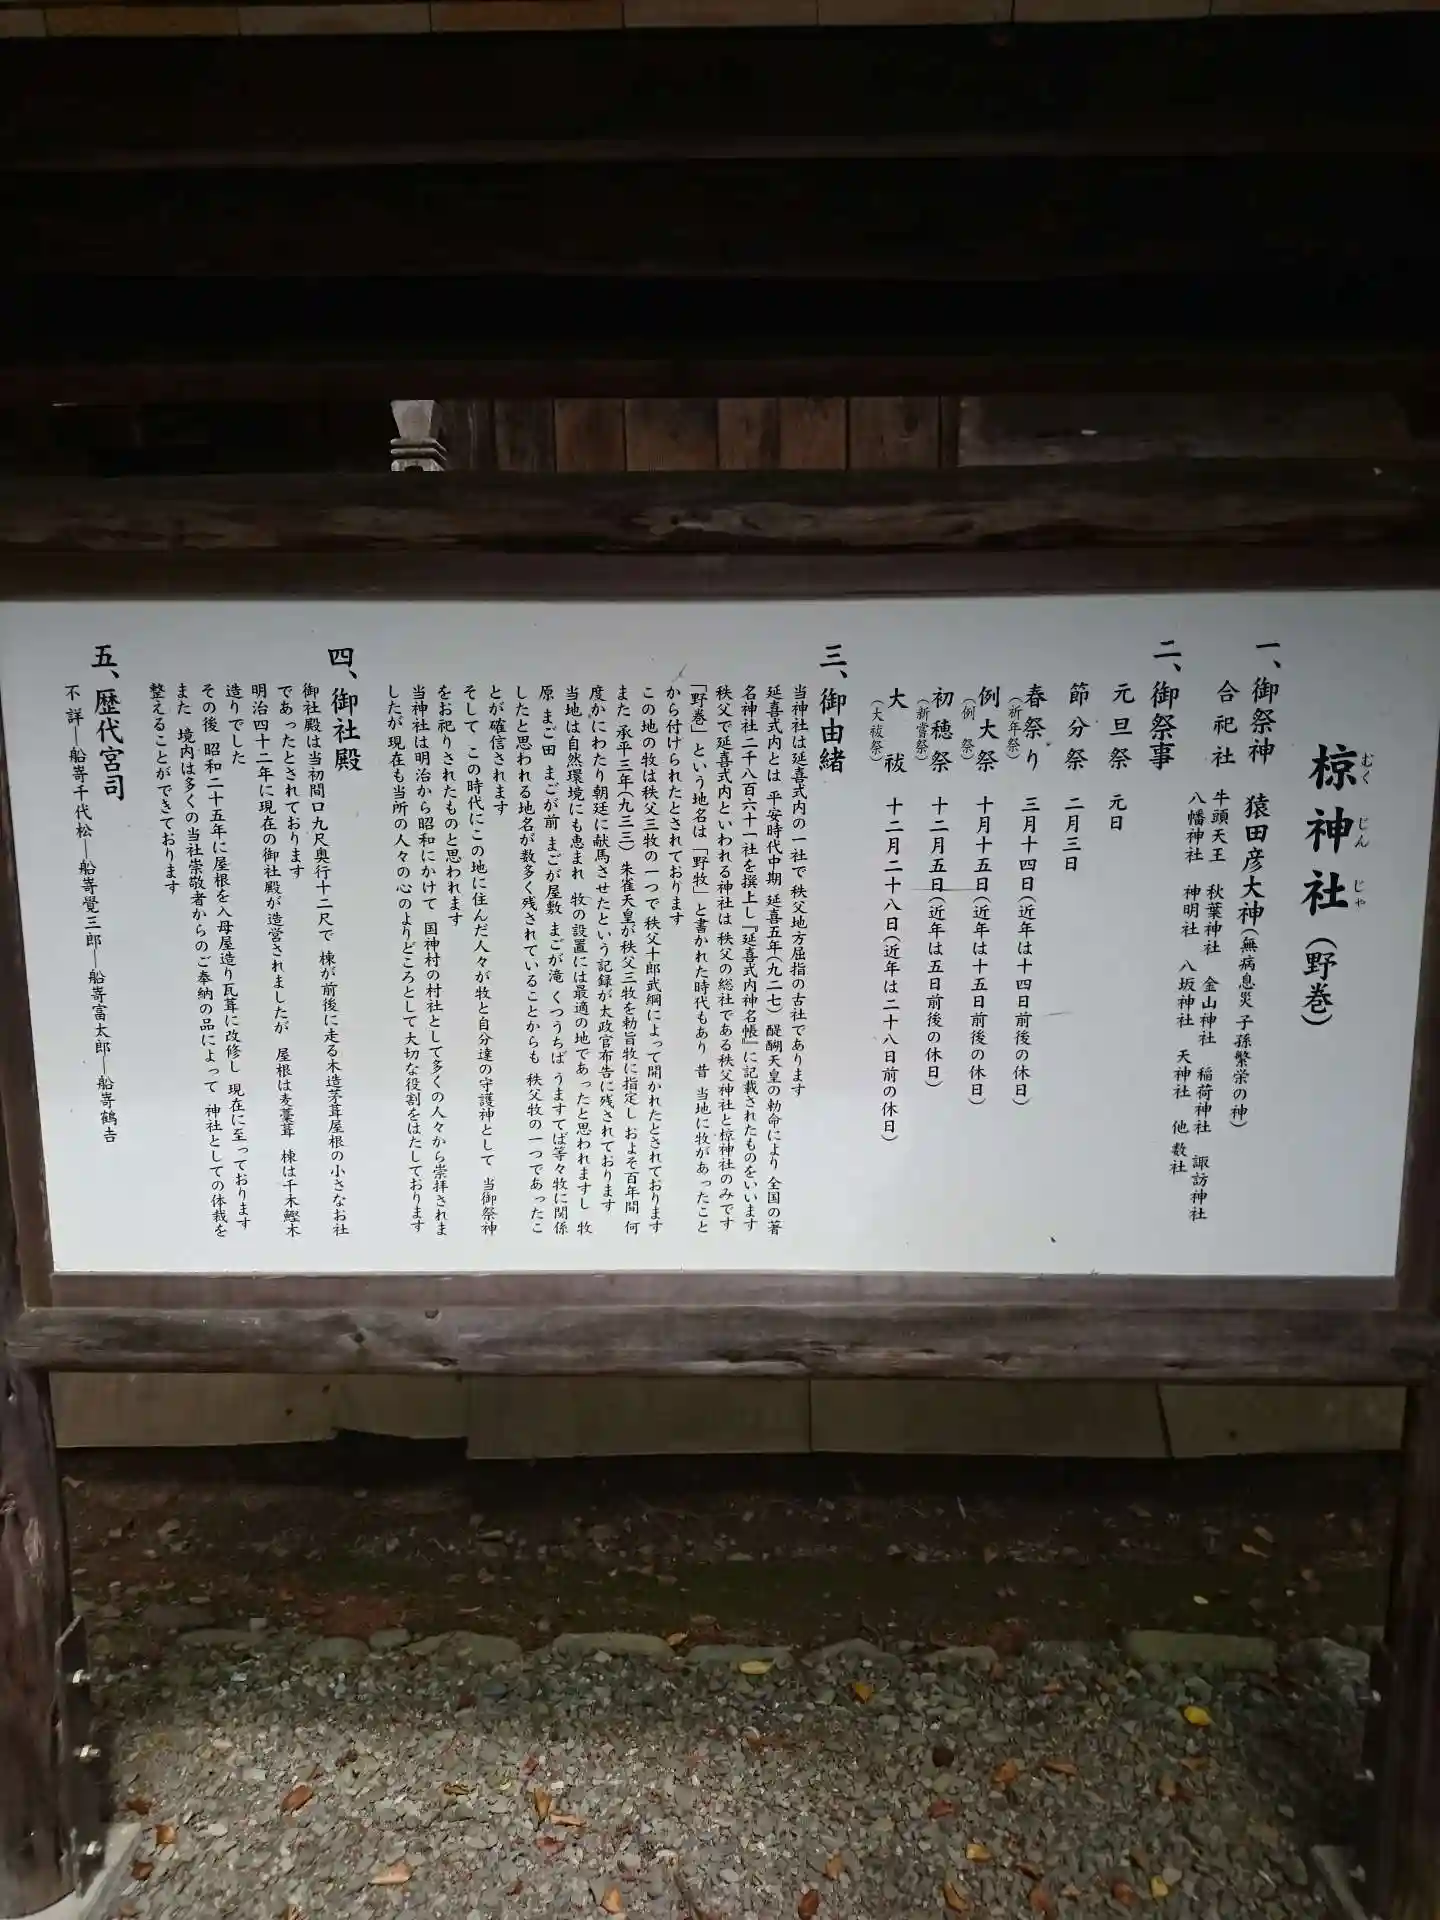 椋神社(野巻)
むくじんじゃ
一、御祭神 猿田彦大神(無病息災 子孫繁栄の神)
合祀社 牛頭天王 秋葉神社 金山神社 稲荷神社 諏訪神社
八幡神社 神明社 八坂神社 天神社 他 数社
二、御祭事
元旦祭 元日
節分祭 二月三日
春祭り 三月十四日(近年は十四日前後の休日)
(祈年祭)
例大祭 十月十五日(近年は十五日前後の休日)
(例 祭)
初穂祭 十二月五日(近年は五日前後の休日)
(新嘗祭)
大祓 十二月二十八日(近年は二十八日前の休日)
(大祓祭)
三、御由緒
当神社は延喜式内の一社で 秩父地方屈指の古社であります
延喜式内とは 平安時代中期 延喜五年(九二七) 醍醐天皇の勅命により 全国の著
名神社二千八百六十一社を撰上し『延喜式内神名帳』に記載されたものをいいます
秩父で延喜式内といわれる神社は 秩父の総社である秩父神社と椋神社のみです
「野巻」という地名は「野牧」と書かれた時代もあり 昔 当地に牧があったこと
から付けられたとされております
この地の牧は秩父三牧の一つで 秩父十郎武綱によって開かれたとされております
また 承平三年(九三三) 朱雀天皇が秩父三牧を勅旨牧に指定し およそ百年間 何
度かにわたり朝廷に献馬させたという記録が太政官布告に残されております
当地は自然環境にも恵まれ 牧の設置には最適の地であったと思われますし 牧
原 まご田 まごが前 まごが屋敷 まごが滝 くつうちば うますてば等々牧に関係
したと思われる地名が数多く残されていることからも 秩父牧の一つであったこ
とが確信されます
そして この時代にこの地に住んだ人々が牧と自分達の守護神として 当御祭神
をお祀りされたものと思われます
当神社は明治から昭和にかけて 国神村の村社として多くの人々から崇拝されま
したが現在も当所の人々の心のよりどころとして大切な役割をはたしております
四、御社殿
御社殿は当初間口九尺奥行十二尺で 棟が前後に走る木造茅葺屋根の小さなお社
であったとされております
明治四十二年に現在の御社殿が造営されましたが 屋根は麦藁葺 棟は千木鰹木
造りでした
その後 昭和二十五年に屋根を入母屋造り瓦葺に改修し 現在に至っております
また 境内は多くの当社崇敬者からのご奉納の品によって 神社としての体裁を
整えることができております
五、歴代宮司
不 詳―船嵜千代松―船嵜覺三郎―船嵜富太郎―船嵜鶴吉